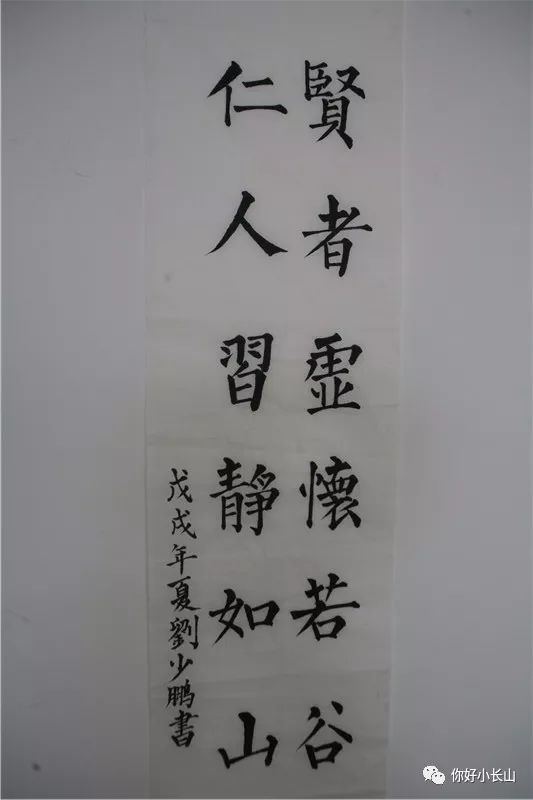 賢者虛懷若谷
仁人習靜如山
戊戌年夏劉少鵬書
你好小长山